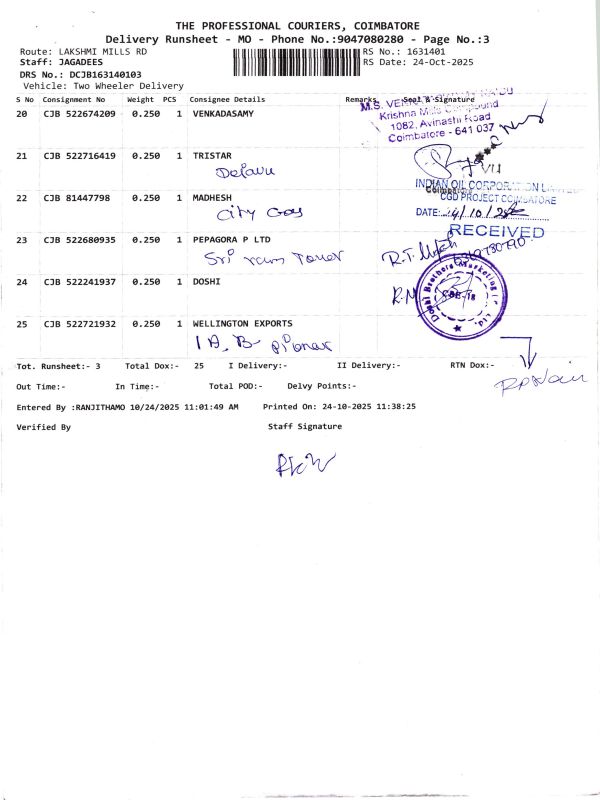 THE PROFESSIONAL COURIERS, COIMBATORE
Delivery Runsheet - MO - Phone No.:9047080280 - Page No.:3
Route: LAKSHMI MILLS RD
RS No.: 1631401
Staff: JAGADEES
RS Date: 24-Oct-2025
DRS No.: DCJB163140103
Vehicle: Two Wheeler Delivery
S No Consignment No Weight PCS Consignee Details Remarks Seal & Signature
20 CJB 522674209 0.250 1 VENKADASAMY
Krishna Mills Compound
1082, Avinashi Road
Coimbatore - 641 037
21 CJB 522716419 0.250 1 TRISTAR
INDIAN OIL CORPORATION LIMITED
22 CJB 81447798 0.250 1 MADHESH
CGD PROJECT COIMBATORE
City Gas
DATE:
RECEIVED
23 CJB 522680935 0.250 1 PEPAGORA P LTD
Sri ram Tower
24 CJB 522241937 0.250 1 DOSHI
Doshi Brothers Marketing (P) Ltd.
CBE-18
25 CJB 522721932 0.250 1 WELLINGTON EXPORTS
Tot. Runsheet:- 3 Total Dox:- 25 I Delivery:- II Delivery:- RTN Dox:-
Out Time:- In Time:- Total POD:- Delvy Points:-
Entered By :RANJITHAMO 10/24/2025 11:01:49 AM Printed On: 24-10-2025 11:38:25
Verified By Staff Signature